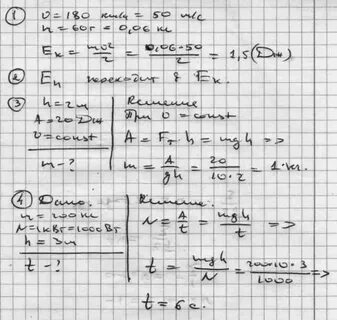 ① υ = 180 км/ч = 50 м/с
m = 60г = 0,06 кг
Eк = mυ²/2 = 0,06·50/2 = 1,5 (Дж)
② Eп переходит в Eк.
③ h = 2м
A = 20 Дж
υ = const
m - ?
Решение
При υ = const
A = Fт · h = mgh =>
m = A/gh = 20/10·2 = 1 кг.
④ Дано.
m = 200 кг
N = 1кВт = 1000 Вт
h = 3м
t - ?
Решение.
N = A/t = mgh/t =>
t = mgh/N = 200·10·3/1000 =>
t = 6 с.